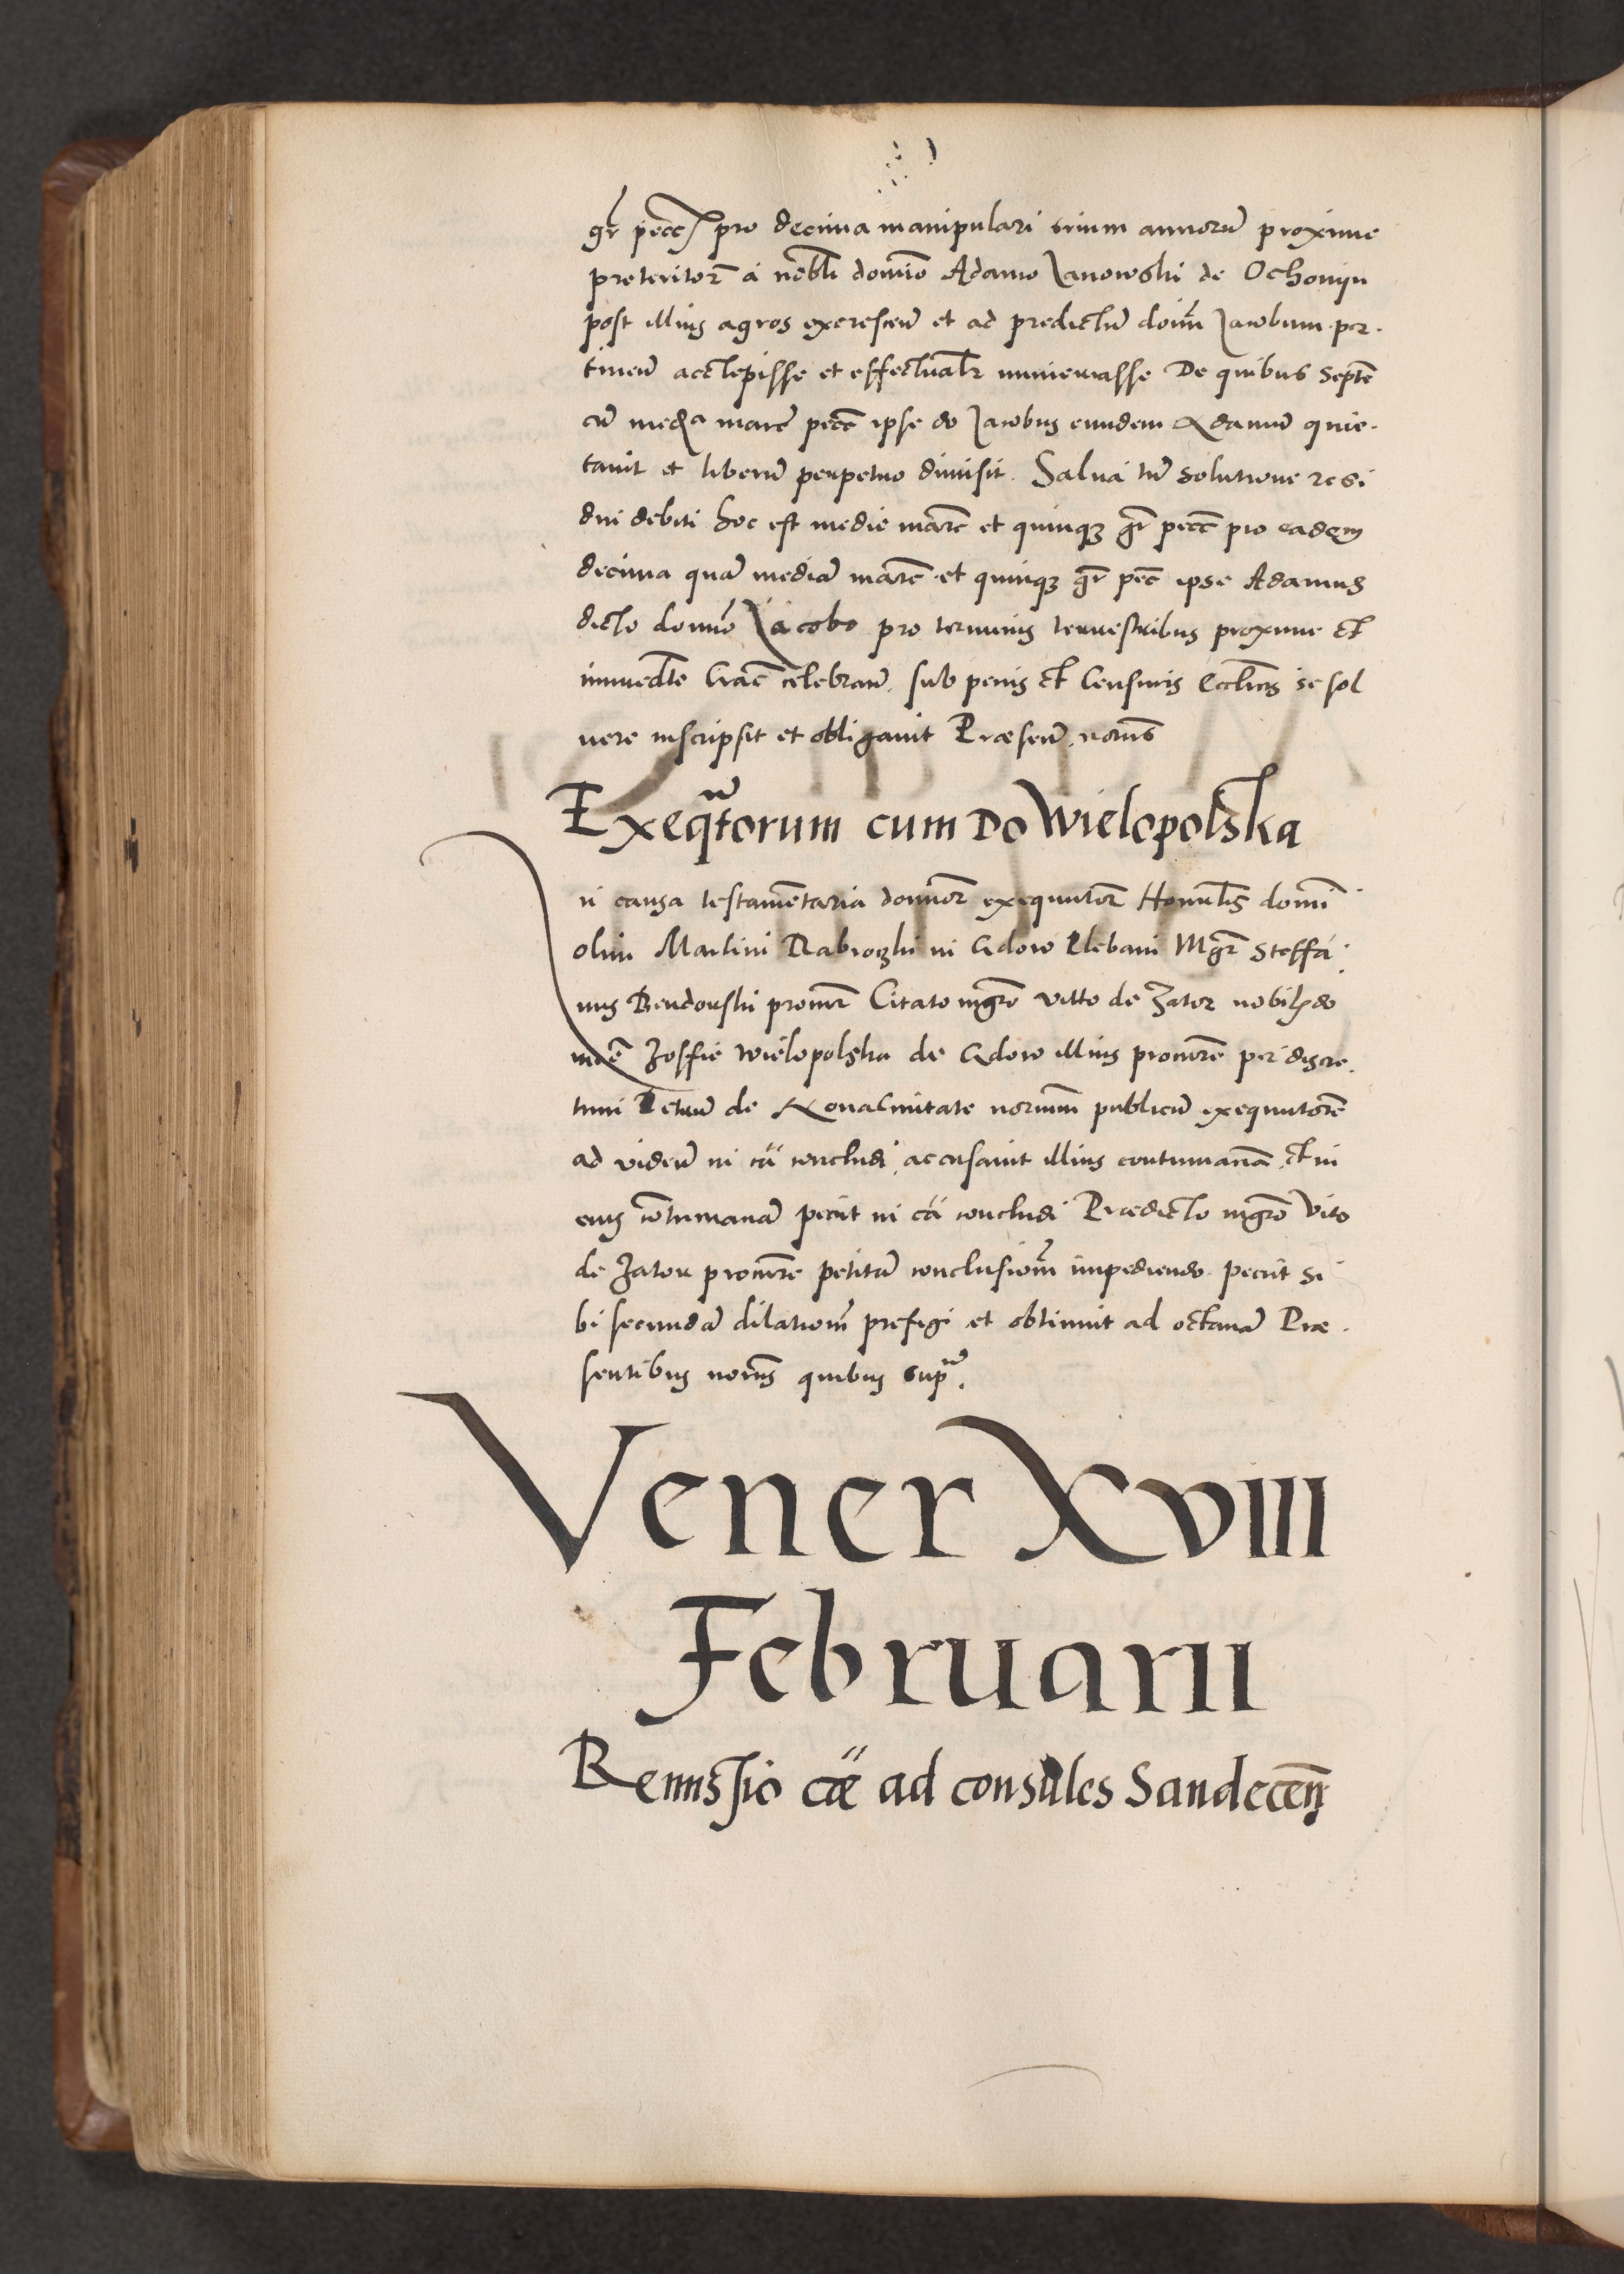 gr̄ pecc̄ pro decima manipulari trium annorū proxime
preteritor̄ a nobli domīo Adamo Janowski de Ochoniyn
post illius agros excrescen̄ et ad predictū doīm Jacobum per-
tinen̄ acceepisse et effectualr̄ numerasse De quibus septē
cū media marc̄ pecc̄ ipse do Jacobus eundem Adamū quie-
tavit et liberū perpetuo dimisit. Salva tn̄ solutione resi
dui debiti hoc est medie marc̄ et quinqȝ gr̄ pecc̄ pro eadem
decima quā mediā marc̄ et quinqȝ gr̄ pec̄ ipse Adamus
dicto domīo Jacobo pro terminis terrestribus proxime et
immedt̄e Crac̄ celebran̄. sub penis et Censuris Eccl̄icis se sol
vere inscripsit et obligavit Præsen̄. nori̅s
Exeqt̄orum cum Do Wielopolska
In causa testamētaria domīor̄ exequutor̄ Honorabl̄is domī
olim Martini Rabroczki in Gdow Plebani Mgr̄ Steffa-
nus Bendonski procur̄ Citato mgr̄o Vitto de Zator nobil do
mīe Zoffie Wielopolska de Gdow illius procur̄e per discre-
tum Petrū de notarium publicū exequutorē
ad viden̄ in cā concludi, accusavit illius contumaciā, et in
eius cōtumaciā peciit in cā concludi Prædicto mgr̄o Vito
de Zator procur̄e petitā conclusionē impediendo. peciit si
bi secundā dilationē prefigi et obtinuit ad octavā Præ-
sentibus nori̅s quibus supra.
Vener XVIII
Februarii
Remissio cæ ad consules Sandecen̄